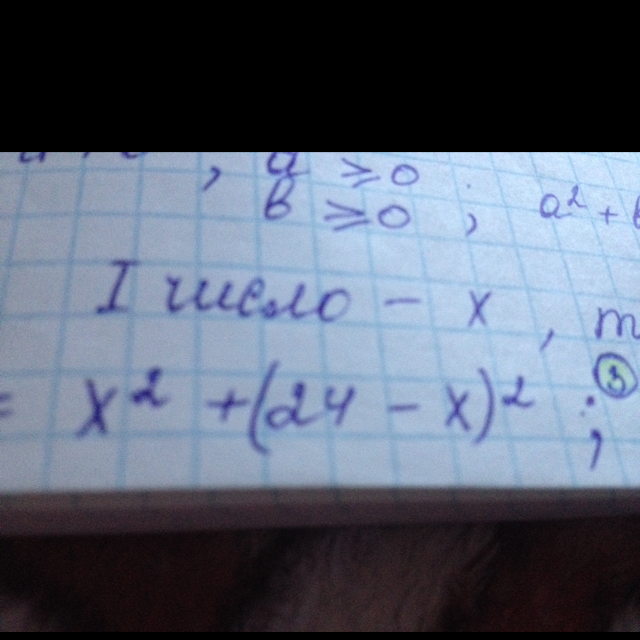 , a ≥ 0
b ≥ 0 , a² +
I число – x , m
= x² + (24 – x)² ;